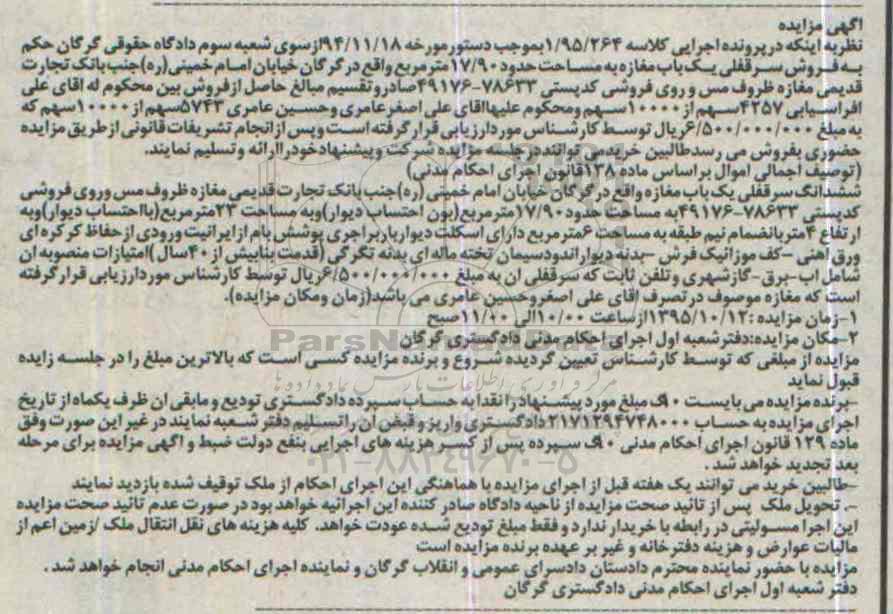 آگهی مزایده
نظر به اینکه در پرونده اجرایی کلاسه ۱/۹۵/۲۶۴ بموجب دستور مورخه ۹۴/۱۱/۱۸ از سوی شعبه سوم دادگاه حقوقی گرگان حکم
به فروش سرقفلی یک باب مغازه به مساحت حدود ۱۷/۹۰ متر مربع واقع در گرگان خیابان امام خمینی (ره) جنب بانک تجارت
قدیمی مغازه ظروف مس و روی فروشی کدپستی ۷۸۶۳۳-۴۹۱۷۶ صادر و تقسیم مبالغ حاصل از فروش بین محکوم له اقای علی
افراسیابی ۴۲۵۷ سهم از ۱۰۰۰۰ سهم و محکوم علیها اقای علی اصغر عامری و حسین عامری ۵۷۴۳ سهم از ۱۰۰۰۰ سهم که
به مبلغ ۶/۵۰۰/۰۰۰/۰۰۰ ریال توسط کارشناس مورد ارزیابی قرار گرفته است و پس از انجام تشریفات قانونی از طریق مزایده
حضوری بفروش می رسد طالبین خرید می توانند در جلسه مزایده شرکت و پیشنهاد خود را ارائه و تسلیم نمایند.
(توصیف اجمالی اموال بر اساس ماده ۱۳۸ قانون اجرای احکام مدنی)
ششدانگ سرقفلی یک باب مغازه واقع در گرگان خیابان امام خمینی (ره) جنب بانک تجارت قدیمی مغازه ظروف مس و روی فروشی
کدپستی ۷۸۶۳۳-۴۹۱۷۶ به مساحت حدود ۱۷/۹۰ متر مربع (بون احتساب دیوار) و به مساحت ۲۳ متر مربع (با احتساب دیوار) و به
ارتفاع ۴ متر با انضمام نیم طبقه به مساحت ۶ متر مربع دارای اسکلت دیوار باربر اجری پوشش بام از ایرانیت ورودی از حفاظ کرکره ای
ورق اهنی -کف موزائیک فرش -بدنه دیوار اندود سیمان تخته ماله ای بدنه تگرگی (قدمت بنا بیش از ۴۰ سال) امتیازات منصوبه ان
شامل اب-برق-گاز شهری و تلفن ثابت که سرقفلی ان به مبلغ ۶/۵۰۰/۰۰۰/۰۰۰ ریال توسط کارشناس مورد ارزیابی قرار گرفته
است که مغازه موصوف در تصرف اقای علی اصغر و حسین عامری می باشد (زمان و مکان مزایده).
۱-زمان مزایده: ۱۳۹۵/۱۰/۱۲ از ساعت ۱۰/۰۰ الی ۱۱/۰۰ صبح
۲-مکان مزایده: دفتر شعبه اول اجرای احکام مدنی دادگستری گرگان
مزایده از مبلغی که توسط کارشناس تعیین گردیده شروع و برنده مزایده کسی است که بالاترین مبلغ را در جلسه زایده
قبول نماید
-برنده مزایده می بایست ۱۰٪ مبلغ مورد پیشنهاد را نقدا به حساب سپرده دادگستری تودیع و مابقی ان ظرف یکماه از تاریخ
اجرای مزایده به حساب ۲۱۷۱۲۹۴۷۴۸۰۰۰ دادگستری واریز و قبض ان را تسلیم دفتر شعبه نمایند در غیر این صورت وفق
ماده ۱۲۹ قانون اجرای احکام مدنی ۱۰٪ سپرده پس از کسر هزینه های اجرایی بنفع دولت ضبط و اگهی مزایده برای مرحله
بعد تجدید خواهد شد.
-طالبین خرید می توانند یک هفته قبل از اجرای مزایده با هماهنگی این اجرای احکام از ملک توقیف شده بازدید نمایند
-. تحویل ملک پس از تائید صحت مزایده از ناحیه دادگاه صادر کننده این اجرائیه خواهد بود در صورت عدم تائید صحت مزایده
این اجرا مسولیتی در رابطه با خریدار ندارد و فقط مبلغ تودیع شده عودت خواهد. کلیه هزینه های نقل انتقال ملک /زمین اعم از
مالیات عوارض و هزینه دفترخانه و غیر بر عهده برنده مزایده است
مزایده با حضور نماینده محترم دادستان دادسرای عمومی و انقلاب گرگان و نماینده اجرای احکام مدنی انجام خواهد شد.
دفتر شعبه اول اجرای احکام مدنی دادگستری گرگان
ParsNamadData
۰۲۱-۸۸۳۴۹۶۷۰-۵